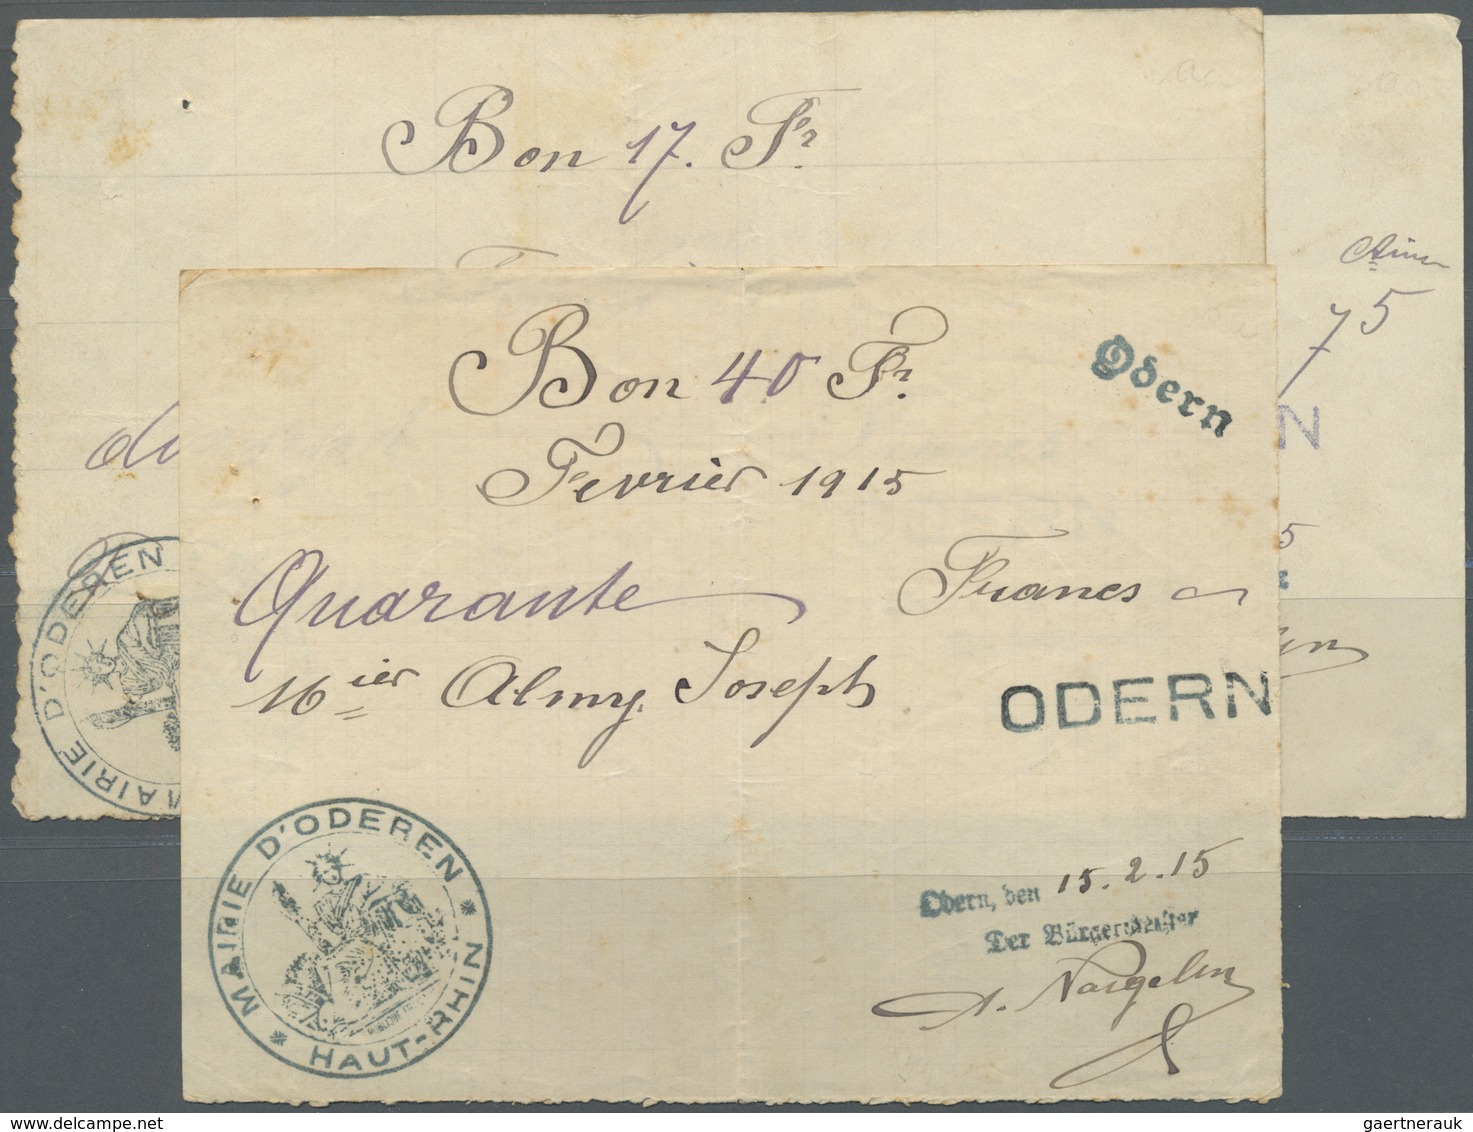 Bon 17. Fr
Aimé
75
N
5
MAIRIE D'ODEREN
Bon 40 Fr.
Odern
Fevrier 1915
Quarante Francs
16ier Almy Joseph
ODERN
MAIRIE D'ODEREN
* HAUT-RHIN *
Odern, den 15.2.15
Der Bürgermeister
gaertnerauk@delcampe.net